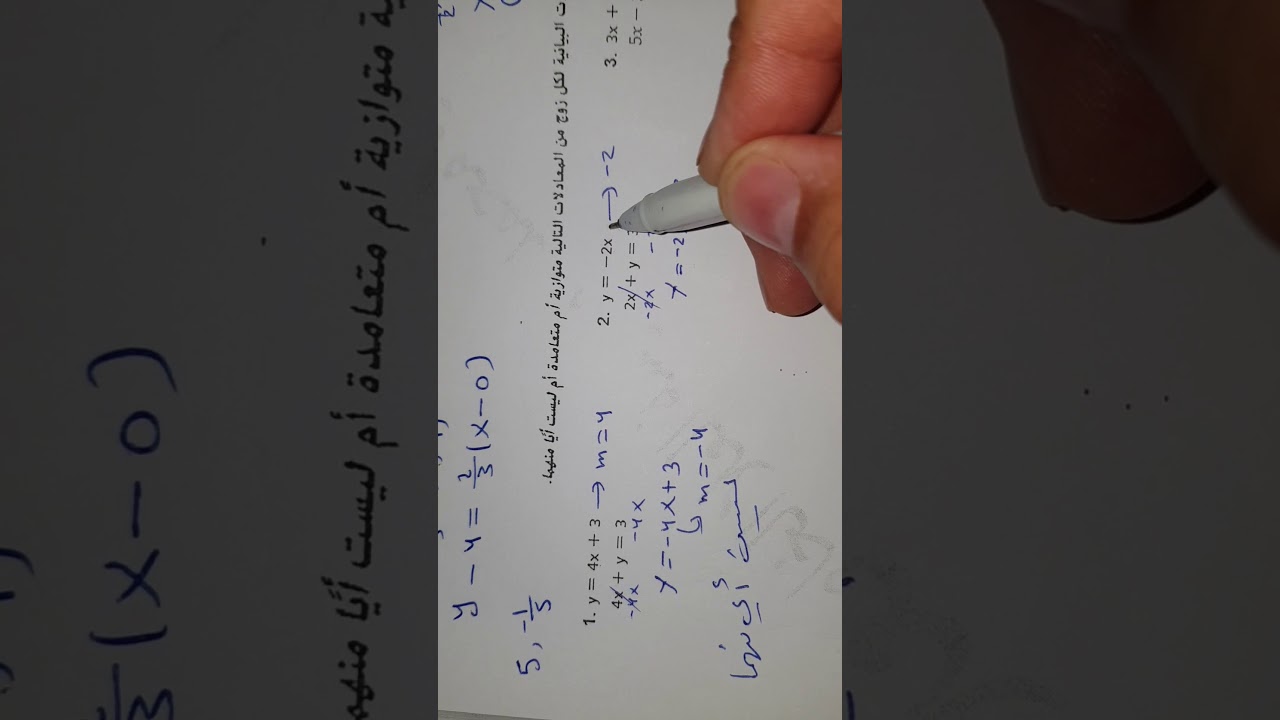 y - 4 = 2/3 (x - 0)
5 , -1/5
ت البيانية لكل زوج من المعادلات التالية متوازية أم متعامدة أم ليست أيًا منهما.
1. y = 4x + 3 → m = 4
4x + y = 3
-4x -4x
y = -4x + 3
m = -4
ليست أي منهما
2. y = -2x → -2
2x + y =
-2x
y = -2
3. 3x +
5x -